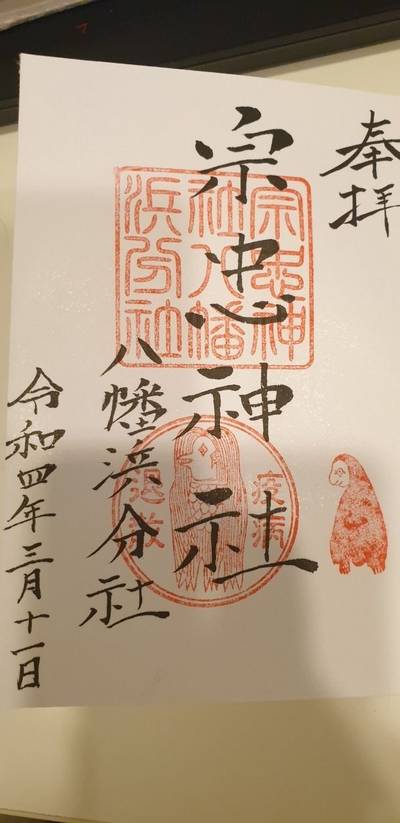 奉拝
宗忠神社
八幡浜分社
令和四年三月十一日
宗忠神
社八幡
浜分社
疫病
退散